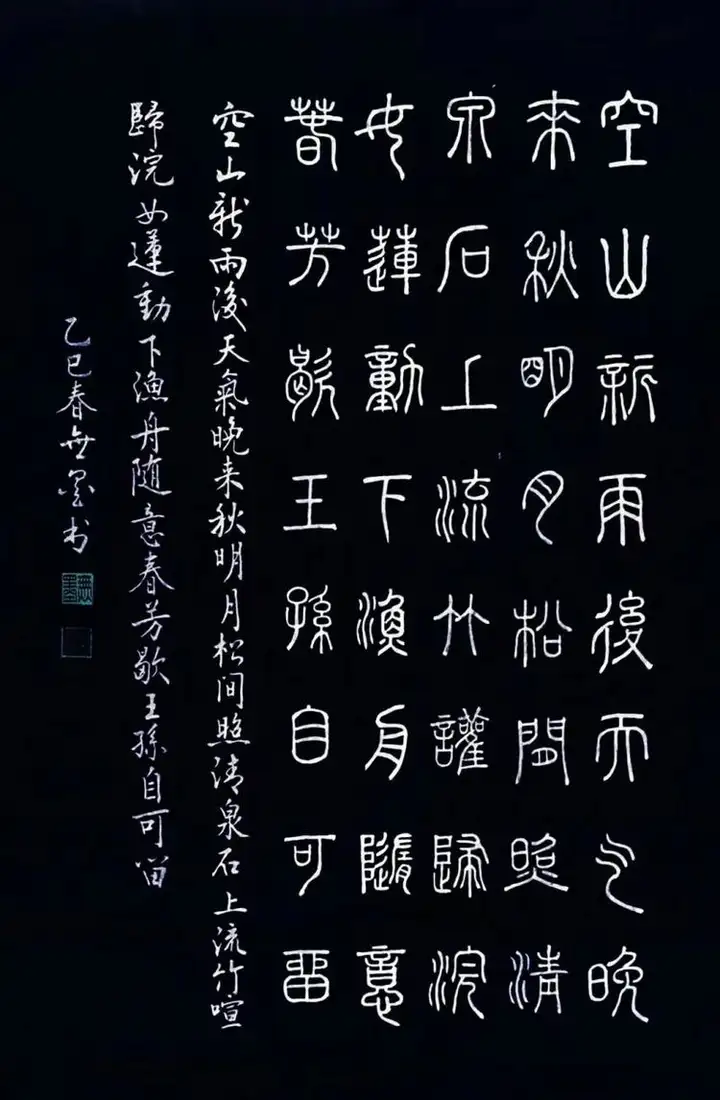 空山新雨後天气晚
來秋明月松間照清
泉石上流竹讙歸浣
女蓮動下漁舟隨意
春芳歇王孫自可留
空山新雨後天氣晚来秋明月松间照清泉石上流竹喧
歸浣女蓮動下漁舟随意春芳歇王孫自可留
乙巳春無墨书